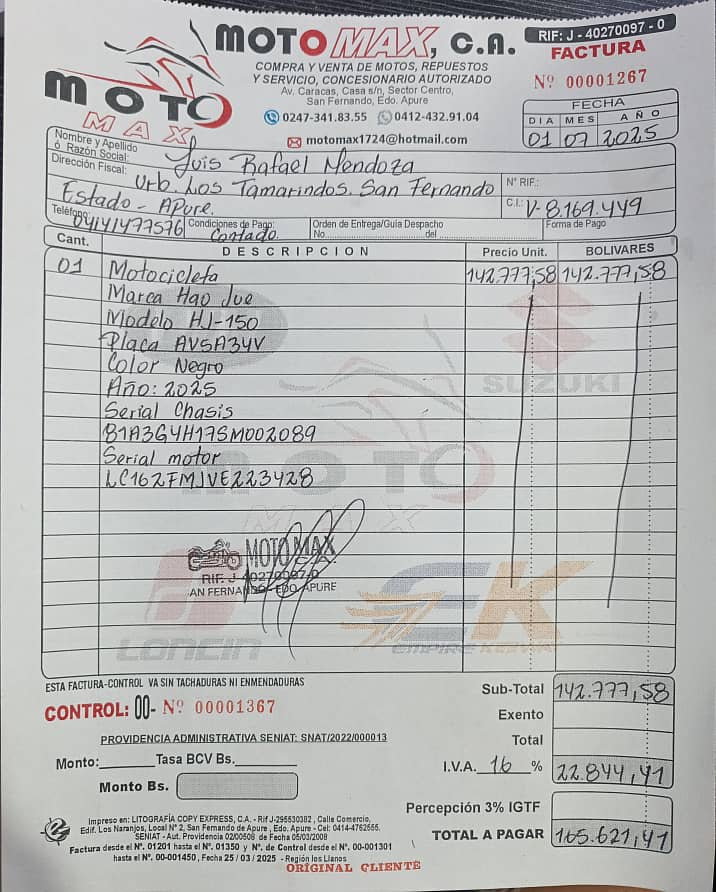 MOTO MAX, C.A.
RIF: J - 40270097 - 0
FACTURA
Nº 00001267
COMPRA Y VENTA DE MOTOS, REPUESTOS
Y SERVICIO, CONCESIONARIO AUTORIZADO
Av. Caracas, Casa s/n, Sector Centro,
San Fernando, Edo. Apure
0247-341.83.55 0412-432.91.04
motomax1724@hotmail.com
MOTO
MAX
FECHA
DIA MES AÑO
01 07 2025
Nombre y Apellido
ó Razón Social: Luis Rafael Mendoza
Dirección Fiscal: Urb. Los Tamarindos. San Fernando
Estado - Apure.
N° RIF.:
C.I.: V-8.169.449
Teléfono: 04141477576 Condiciones de Pago: Contado Orden de Entrega/Guía Despacho No. del Forma de Pago
Cant. DESCRIPCION Precio Unit. BOLIVARES
01 Motocicleta 142.777,58 142.777,58
Marca Hao Jue
Modelo HJ-150
Placa AV5A34V
Color Negro
Año: 2025
SUZUKI
Serial Chasis
81A3G4H17SM002089
Serial motor
LC162FMJVE223428
MOTO
MAX
MOTO MAX
RIF: J-40270097-0
AN FERNANDO - EDO. APURE
LONCIN
EK
EMPIRE KEEWAY
ESTA FACTURA-CONTROL VA SIN TACHADURAS NI ENMENDADURAS
CONTROL: 00- Nº 00001367
PROVIDENCIA ADMINISTRATIVA SENIAT: SNAT/2022/000013
Monto: Tasa BCV Bs.
Monto Bs.
Sub-Total 142.777,58
Exento
Total
I.V.A. 16 % 22.844,41
Percepción 3% IGTF
TOTAL A PAGAR 165.621,41
Impreso en: LITOGRAFÍA COPY EXPRESS, C.A. - Rif J-295530382 , Calle Comercio,
Edif. Los Naranjos, Local N° 2, San Fernando de Apure , Edo. Apure - Cel: 0414-4762555.
SENIAT - Aut. Providencia 02/00508 de Fecha 05/03/2008
Factura desde el Nº. 01201 hasta el Nº. 01350 y Nº. de Control desde Nº. 00-001301
hasta el Nº. 00-001450 , Fecha 25 / 03 / 2025 - Región los Llanos
ORIGINAL CLIENTE